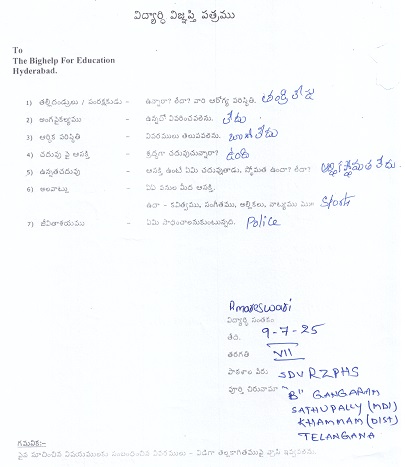 విద్యార్థి విజ్ఞప్తి పత్రము
To
The Bighelp For Education
Hyderabad.
1) తల్లిదండ్రులు / సంరక్షకుడు - ఉన్నారా? లేదా? వారి ఆరోగ్య పరిస్థితి. తండ్రి లేడు
2) అంగవైకల్యము - ఉన్నచో వివరించవలెను. లేదు
3) ఆర్థిక పరిస్థితి - వివరములు తెలుపవలెను. బాగా లేదు
4) చదువు పై ఆసక్తి - శ్రద్ధగా చదువుచున్నారా? ఉంది
5) ఉన్నతచదువు - ఆసక్తి ఉంటే ఏమి చదువుతాడు, స్తోమత ఉందా? లేదా? ఆర్థిక స్తోమత లేదు
6) అలవాట్లు - ఏయే పనుల మీద ఆసక్తి.
ఉదా - కవిత్వము, సంగీతము, ఆటలు, నాట్యము Sports
7) జీవితాశయము - ఏమి సాధించాలనుకుంటున్నది. Police
Rmareswari
విద్యార్థి సంతకం
తేది. 9-7-25
తరగతి VII
పాఠశాల పేరు SDV RZPHS
పూర్తి చిరునామా "B" GANGARAM
SATHUPALLY (MD)
KHAMMAM (DIST)
TELANGANA
గమనిక:-
పైన సూచించిన విషయములకు సంబంధించిన వివరములు - విడిగా తెల్లకాగితముపై వ్రాసి ఇవ్వవలెను.